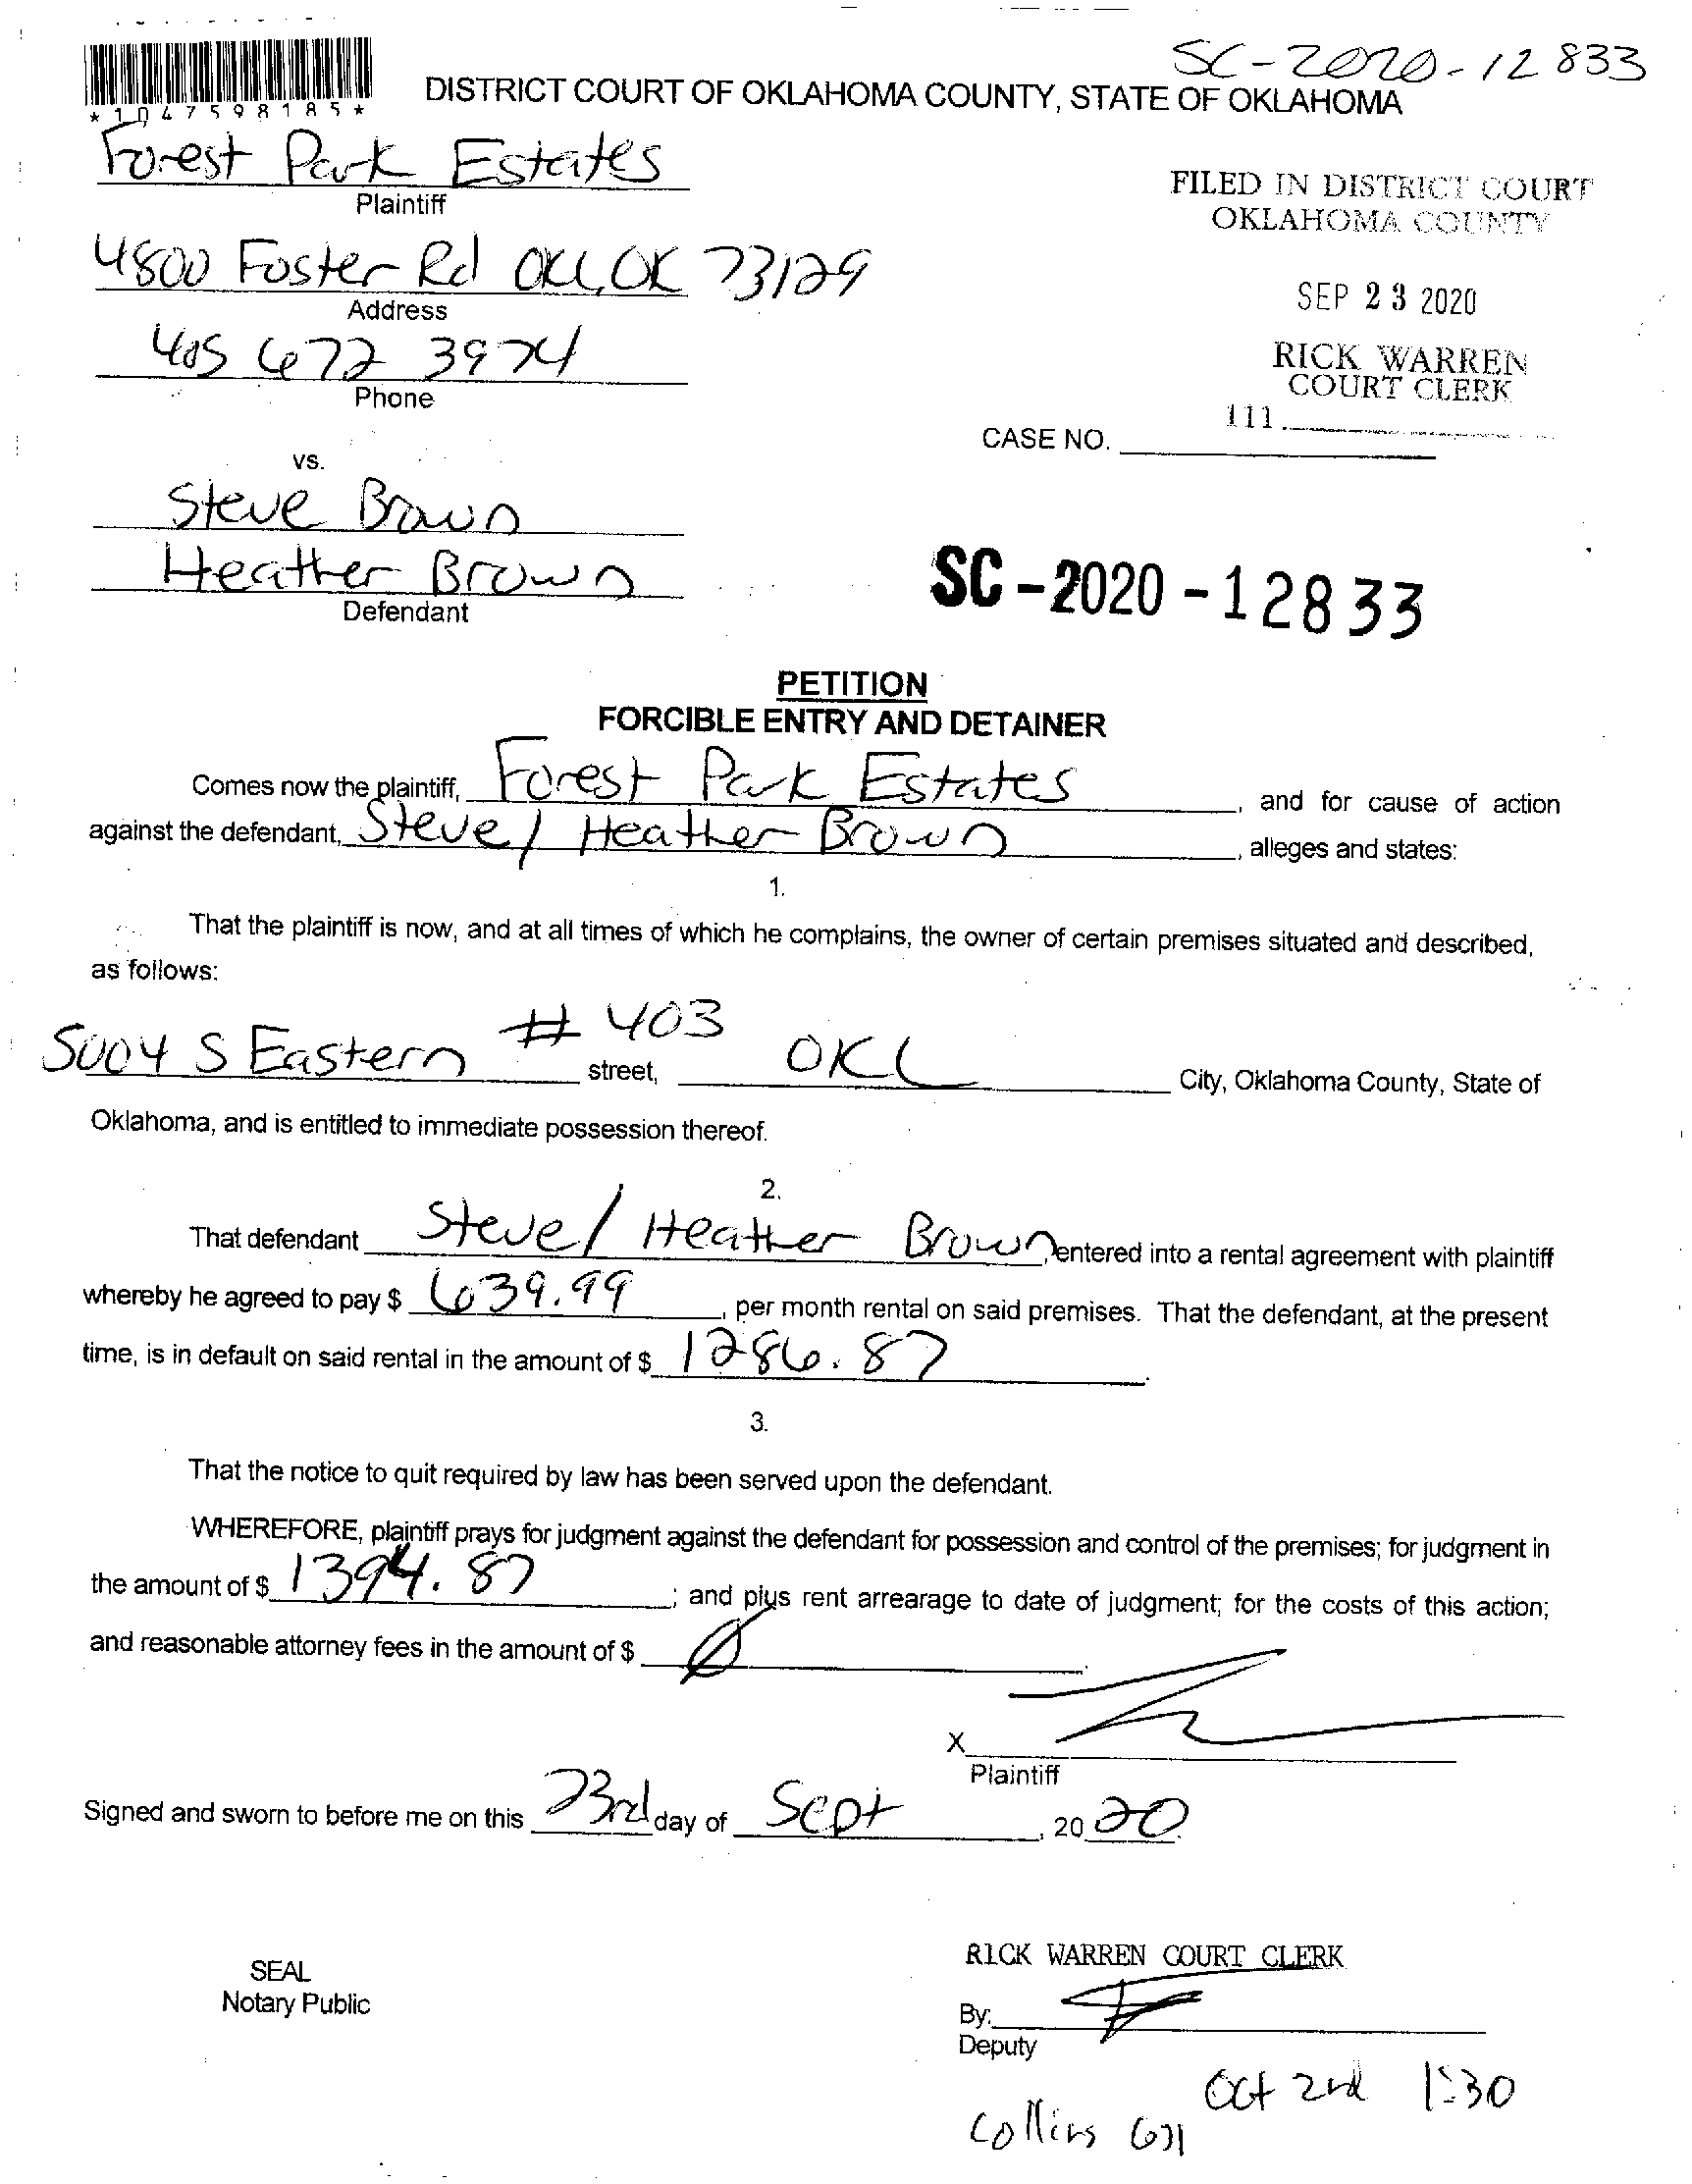 SC-2020-12833
*1047598185*
DISTRICT COURT OF OKLAHOMA COUNTY, STATE OF OKLAHOMA
Forest Park Estates
Plaintiff
FILED IN DISTRICT COURT
OKLAHOMA COUNTY
4800 Foster Rd OKC, OK 73129
Address
SEP 23 2020
405 672 3974
Phone
RICK WARREN
COURT CLERK
111
CASE NO.
vs.
Steve Brown
Heather Brown
Defendant
SC-2020-12833
PETITION
FORCIBLE ENTRY AND DETAINER
Comes now the plaintiff, Forest Park Estates, and for cause of action
against the defendant, Steve / Heather Brown, alleges and states:
1.
That the plaintiff is now, and at all times of which he complains, the owner of certain premises situated and described,
as follows:
5004 S Eastern # 403 street, OKC City, Oklahoma County, State of
Oklahoma, and is entitled to immediate possession thereof.
2.
That defendant Steve / Heather Brown, entered into a rental agreement with plaintiff
whereby he agreed to pay $ 639.99, per month rental on said premises. That the defendant, at the present
time, is in default on said rental in the amount of $ 1286.87.
3.
That the notice to quit required by law has been served upon the defendant.
WHEREFORE, plaintiff prays for judgment against the defendant for possession and control of the premises; for judgment in
the amount of $ 1394.87; and plus rent arrearage to date of judgment; for the costs of this action;
and reasonable attorney fees in the amount of $ Ø.
X
Plaintiff
Signed and sworn to before me on this 23rd day of Sept, 2020.
SEAL
Notary Public
RICK WARREN COURT CLERK
By:
Deputy
Oct 2nd 1:30
Collins 631